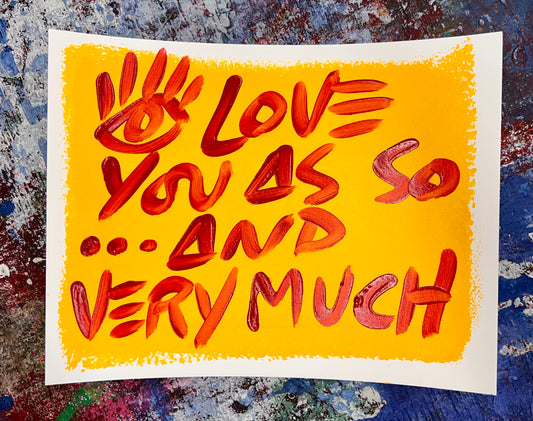 LOVE
YOU AS SO
...AND
VERY MUCH